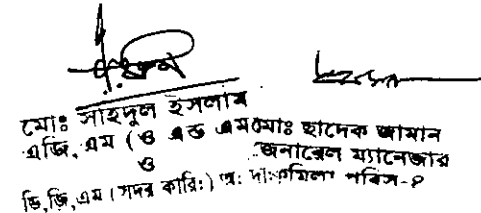 মোঃ সাইদুল ইসলাম
এজি, এম (ও এন্ড এম)
ও
ডি,জি,এম (সদর কারি:) অ: দা:
মোঃ ছাদেক জামান
জেনারেল ম্যানেজার
কুমিল্লা পবিস-২